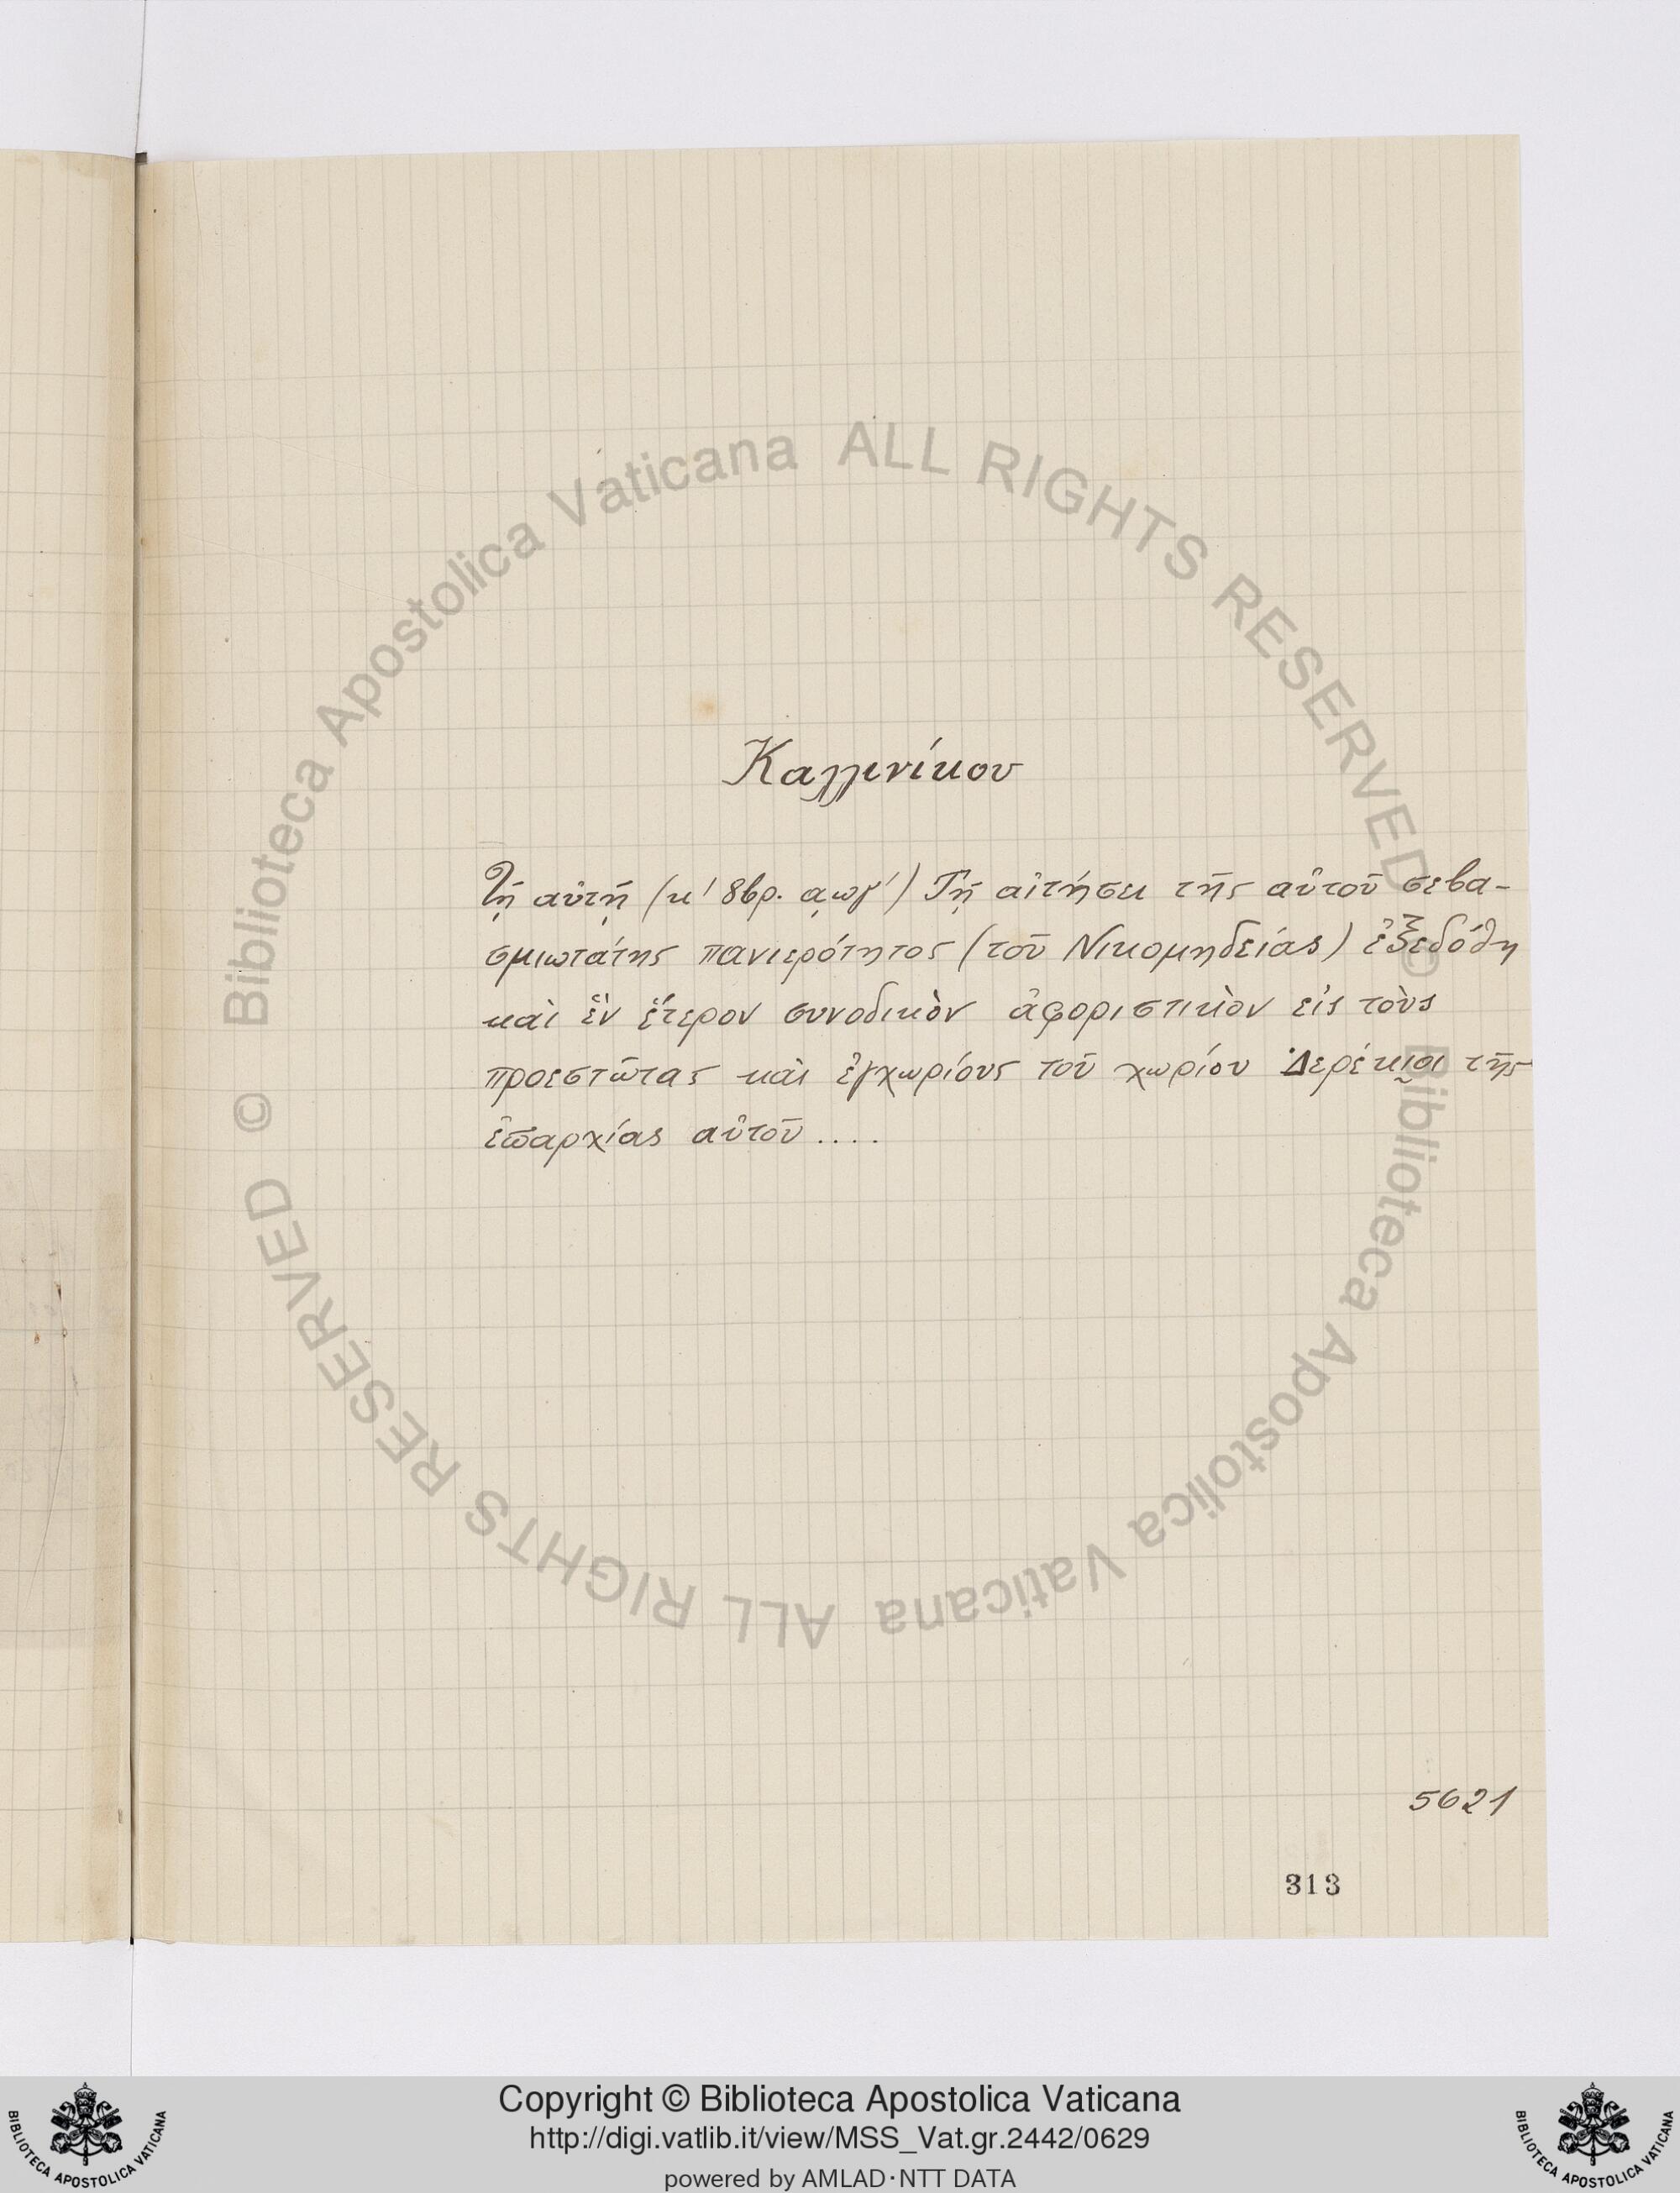 Καλλινίκου
Τῇ αὐτῇ (κ' 8βρ. ͵αωγ') Τῇ αἰτήσει τῆς αὐτοῦ σεβα-
σμιωτάτης πανιερότητος (τοῦ Νικομηδείας) ἐξεδόθη
καὶ ἓν ἕτερον συνοδικὸν ἀφοριστικὸν εἰς τοὺς
προεστῶτας καὶ ἐγχωρίους τοῦ χωρίου Δερέκιοι τῆς
ἐπαρχίας αὐτοῦ ....
5621
313
© Biblioteca Apostolica Vaticana ALL RIGHTS RESERVED
© Biblioteca Apostolica Vaticana ALL RIGHTS RESERVED
Copyright © Biblioteca Apostolica Vaticana
http://digi.vatlib.it/view/MSS_Vat.gr.2442/0629
powered by AMLAD·NTT DATA
BIBLIOTECA APOSTOLICA VATICANA
BIBLIOTECA APOSTOLICA VATICANA